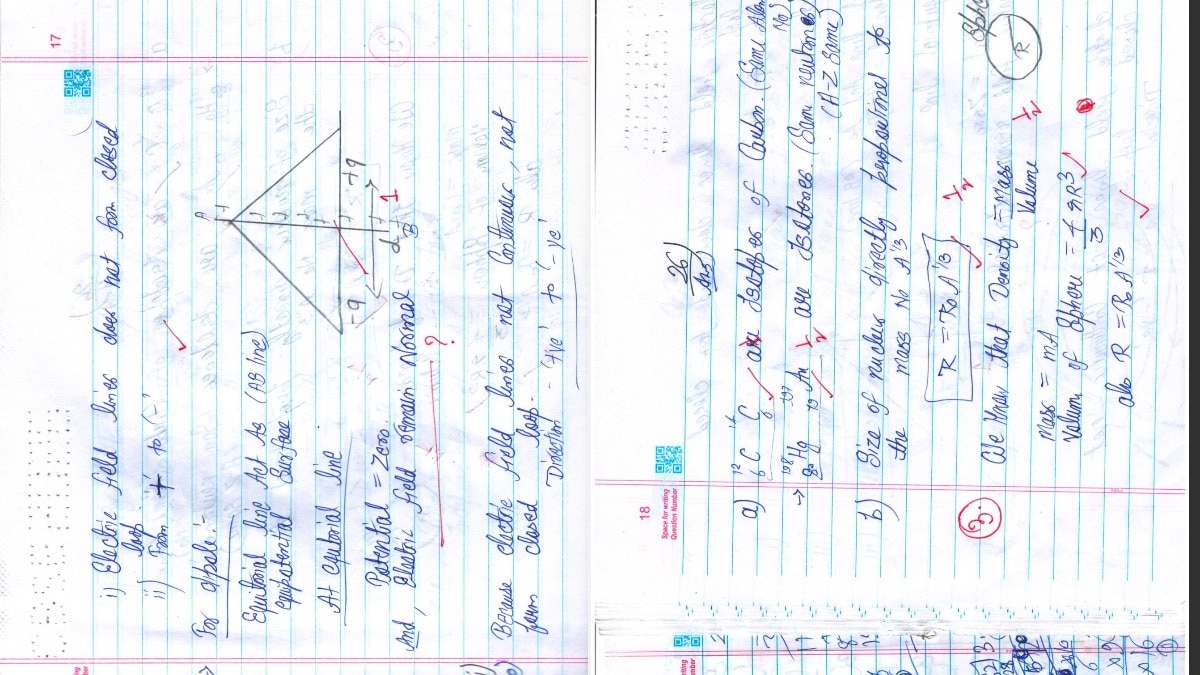 17
i) Electric field lines does not form closed
loop
ii) From '+' to '-'
For dipole:-
Equitorial line Act As (AB line)
equipotential Surface.
At equitorial line
Potential = Zero
And, Electric field remain Normal
?
A
-q
+q
d
B
1
Because electric field lines not Continuous, not
form closed loop.
Direction - '+ve' to '-ve'
18
Space for writing
Question Number
26)
Ans
a) 12 6 C 14 6 C are Isotopes of Carbon. (Same Atom
No)
→ 198 80 Hg 197 79 Au are Isotones. (Same neutones)
(A-Z same)
½
b) Size of nucleus directly proportional to
the mass No A^1/3
R = R₀ A^1/3
½
3.
We know that Density = Mass
Volume
½
Mass = mA
Volume of Sphere = 4 πR³
3
also R = R₀ A^1/3
R